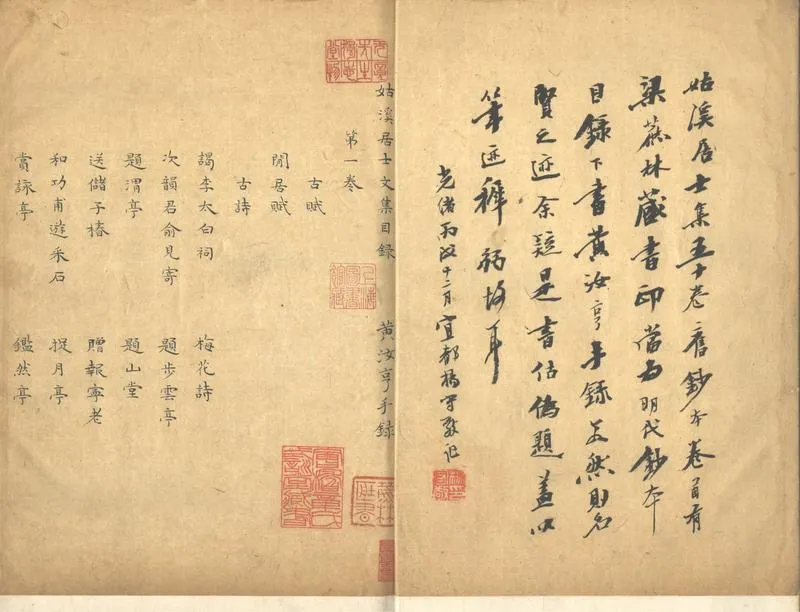 姑溪居士集五十卷舊鈔本卷首有
梁蕉林藏書印當為明代鈔本
目錄下書黃汝亨手錄若然則名
賢之迹余疑是書估偽題蓋以
筆迹稚弱故耳
光緒丙戌十二月宜都楊守敬記
姑溪居士文集目錄 黃汝亨手錄
上海圖書館藏
蕉林藏書
第一卷
古賦
閒居賦
古詩
謁李太白祠 梅花詩
次韻君俞見寄 題步雲亭
題渭亭 題山堂
送儲子椿 贈報寧老
和功甫遊采石 捉月亭
賞詠亭 鑑然亭